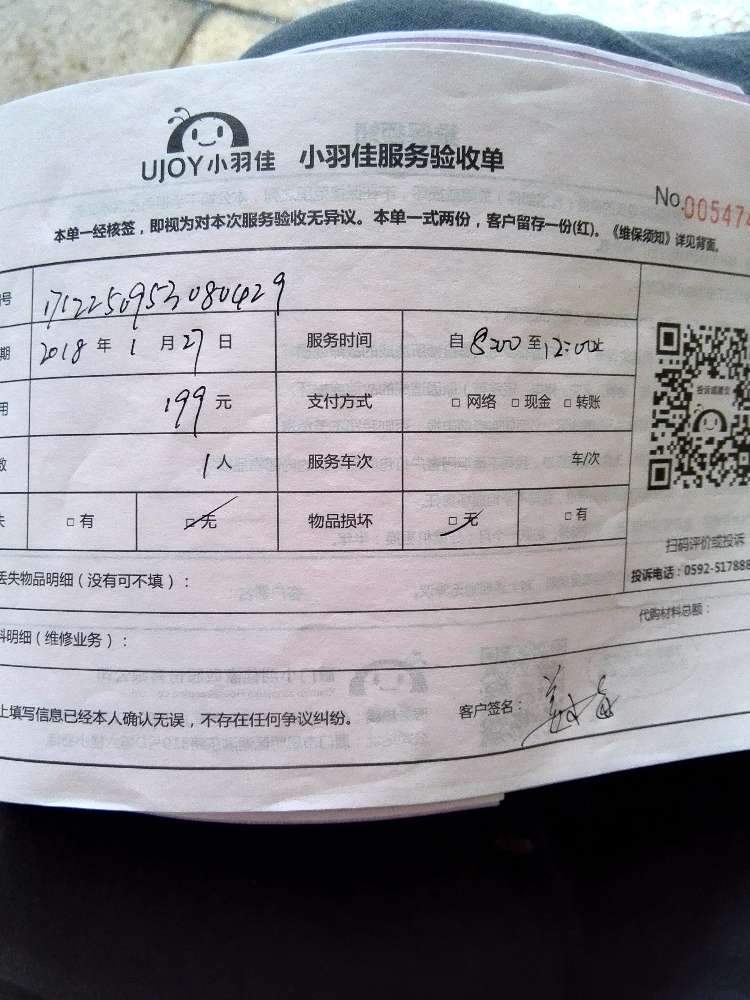 UJOY小羽佳 小羽佳服务验收单
No.005474
本单一经核签，即视为对本次服务验收无异议。本单一式两份，客户留存一份(红)。《维保须知》详见背面。
号 1712250953080429
期 2018 年 1 月 27 日 服务时间 自 8:00 至 12:00止
用 199 元 支付方式 □ 网络 □ 现金 □ 转账
数 1 人 服务车次 车/次
失 □ 有 □ 无 物品损坏 □ 无 □ 有
扫码评价或投诉
投诉电话：0592-517888
丢失物品明细（没有可不填）：
代购材料总额：
料明细（维修业务）：
上填写信息已经本人确认无误，不存在任何争议纠纷。 客户签名：